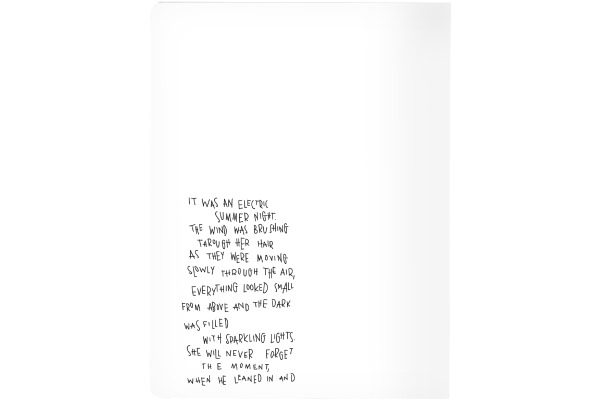 IT WAS AN ELECTRIC
SUMMER NIGHT.
THE WIND WAS BRUSHING
THROUGH HER HAIR
AS THEY WERE MOVING
SLOWLY THROUGH THE AIR,
EVERYTHING LOOKED SMALL
FROM ABOVE AND THE DARK
WAS FILLED
WITH SPARKLING LIGHTS.
SHE WILL NEVER FORGET
THE MOMENT,
WHEN HE LEANED IN AND